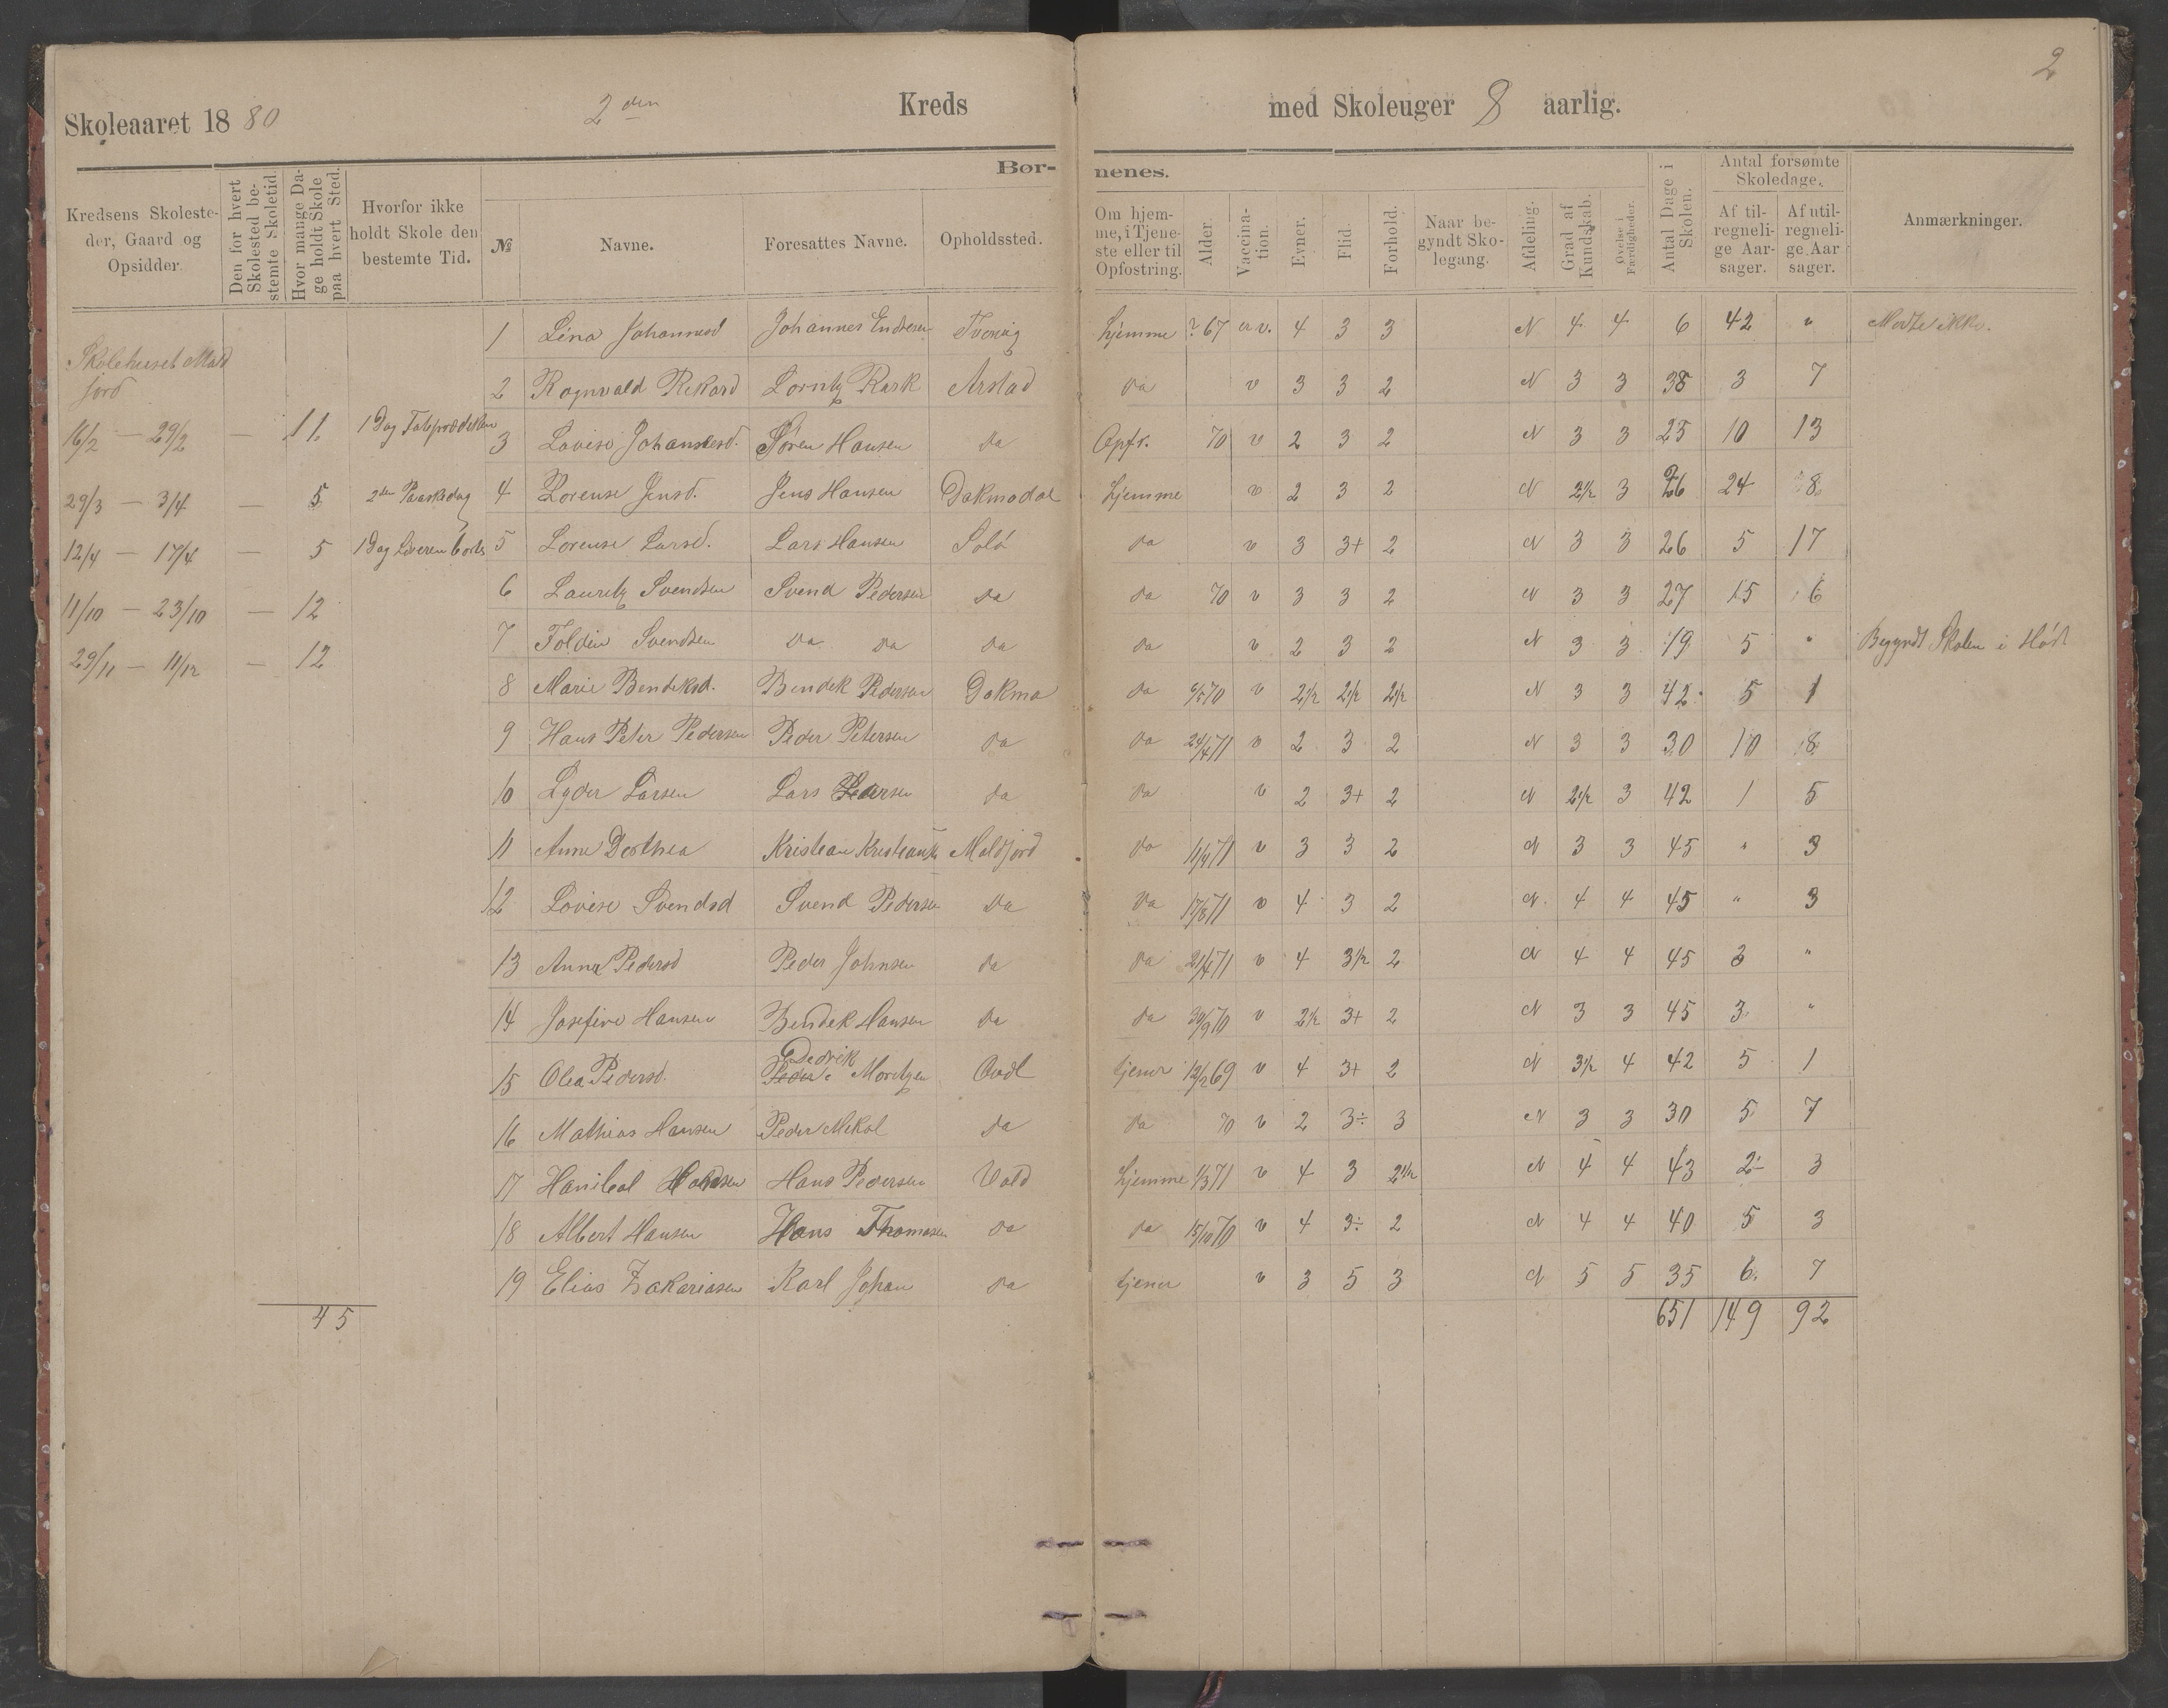 2
Skoleaaret 1880 2den Kreds med Skoleuger 8 aarlig.
Børnenes.
Kredsens Skolesteder, Gaard og Opsidder.
Den for hvert Skolested bestemte Skoletid.
Hvor mange Dage holdt Skole paa hvert Sted.
Hvorfor ikke holdt Skole den bestemte Tid.
№ Navne. Foresattes Navne. Opholdssted.
Om hjemme, i Tjeneste eller til Opfostring.
Alder. Vaccination. Evner. Flid. Forhold.
Naar begyndt Skolegang.
Afdeling. Grad af Kundskab. Øvelse i Færdigheder.
Antal Dage i Skolen.
Antal forsømte Skoledage.
Af tilregnelige Aarsager. Af utilregnelige Aarsager.
Anmærkninger.
Skolehuset Mald
fjord
16/2 — 29/2 — 11.
29/3 — 3/4 — 5 2den Paaskedag
12/4 — 17/4 — 5 1 Dag
11/10 — 23/10 — 12
29/11 — 11/12 — 12
45
1 Lina Johannesd Johannes Endresen hjemme ? 67 v. 4 3 3 N 4 4 6 42 " Mødte ikke.
2 Ragnvald Rikard Lorntz Rask Arstad da v 3 3 2 N 3 3 38 3 7
3 Lovise Johannesd. Søren Hansen da Opfr. 70 v 2 3 2 N 3 3 25 10 13
4 Lorense Jensd. Jens Hansen Dakmadal hjemme v 2 3 2 N 2½ 3 26 24 8
5 Lorense Larsd. Lars Hansen da v 3 3+ 2 N 3 3 26 5 17
6 Lauritz Svendsen Svend Pedersen da da 70 v 3 3 2 N 3 3 27 15 6
7 Foldin Svendsen da da da da v 2 3 2 N 3 3 19 5 " Begyndt Skolen i Høst
8 Marie Bendiksd. Bendik Pedersen Dakma da 6/5 70 v 2½ 2½ 2½ N 3 3 42 5 1
9 Hans Peter Pedersen Peder Petersen da da 24/4 71 v 2 3 2 N 3 3 30 10 8
10 Lyder Larsen Lars Pedersen da da v 2 3+ 2 N 2½ 3 42 1 5
11 Anne Dorthea Kristian Kristians Maldfjord da 11/4 71 v 3 3 2 N 3 3 45 " 3
12 Lovise Svendsd Svend Pedersen da da 17/8 71 v 4 3 2 N. 4 4 45 " 3
13 Anna Pedersd Peder Johnsen da da 21/4 71 v 4 3½ 2 N 4 4 45 3 "
14 Josefine Hansen Bendik Hansen da da 30/9 70 v 2½ 3+ 2 N 3 3 45 3 "
Dedrik
15 Olea Pedersd. Peder Moritzen tjener 12/2 69 v 4 3+ 2 N 3½ 4 42 5 1
16 Mathias Hansen Peder Mikal da da 70 v 2 3÷ 3 N 3 3 30 5 7
17 Hanibal Hansen Hans Pedersen Vold hjemme 1/3 71 v 4 3 2½ N 4 4 43 2 3
18 Albert Hansen Hans Thomasen da da 15/10 70 v 4 3÷ 2 N 4 4 40 5 3
19 Elias Zakariasen Karl Johan da tjener v 3 5 3 N 5 5 35 6. 7
651 149 92